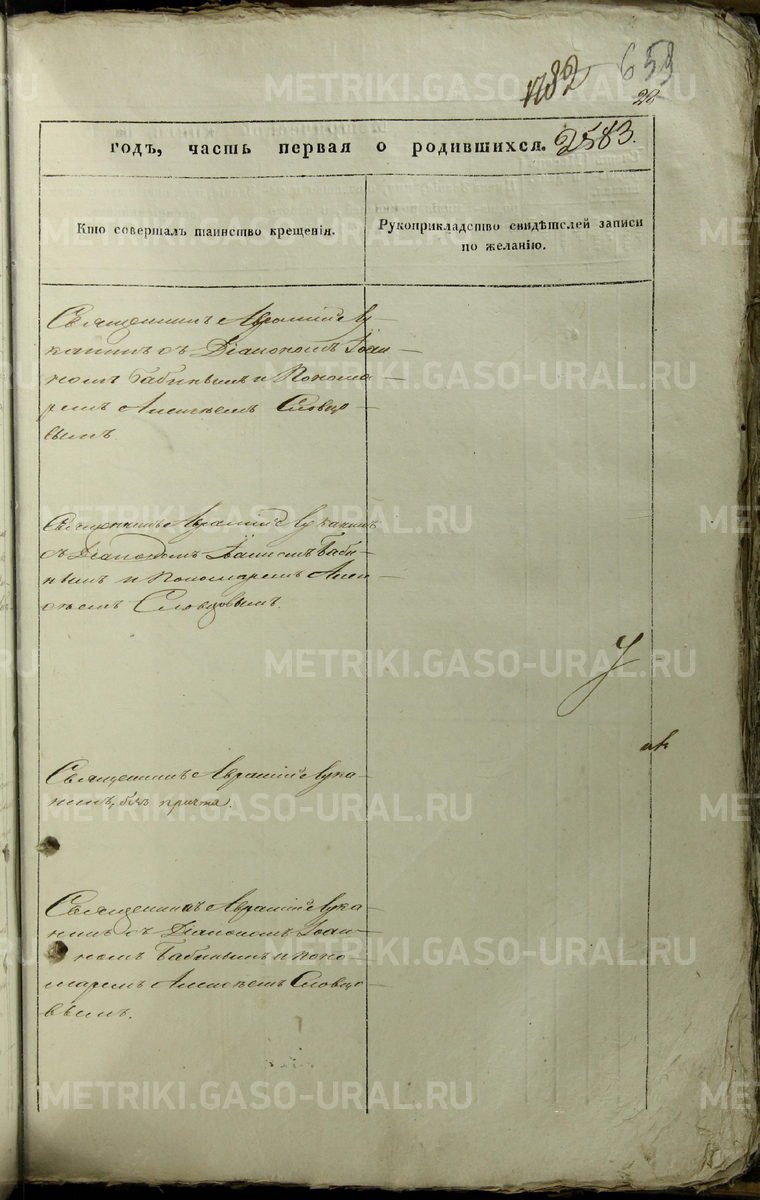 1782 653
22
годъ, часть первая о родившихся. 2583.
Кто совершалъ таинство крещенія.
Рукоприкладство свидѣтелей записи
по желанію.
Священникъ Аврамій Лу-
канинъ съ Діакономъ Іоан-
номъ Бабинымъ и Понома-
ремъ Алексѣемъ Словцо-
вымъ
Священникъ Аврамій Луканинъ
съ Діакономъ Бабин-
ымъ и Пономаремъ Алек-
сѣемъ Словцовымъ.
Священникъ Аврамій Лука-
нинъ, безъ причта.
Священникъ Аврамій Лука-
нинъ съ Діакономъ Іоан-
номъ Бабинымъ и поно-
маремъ Алексѣемъ Словцо-
вымъ.
METRIKI.GASO-URAL.RU